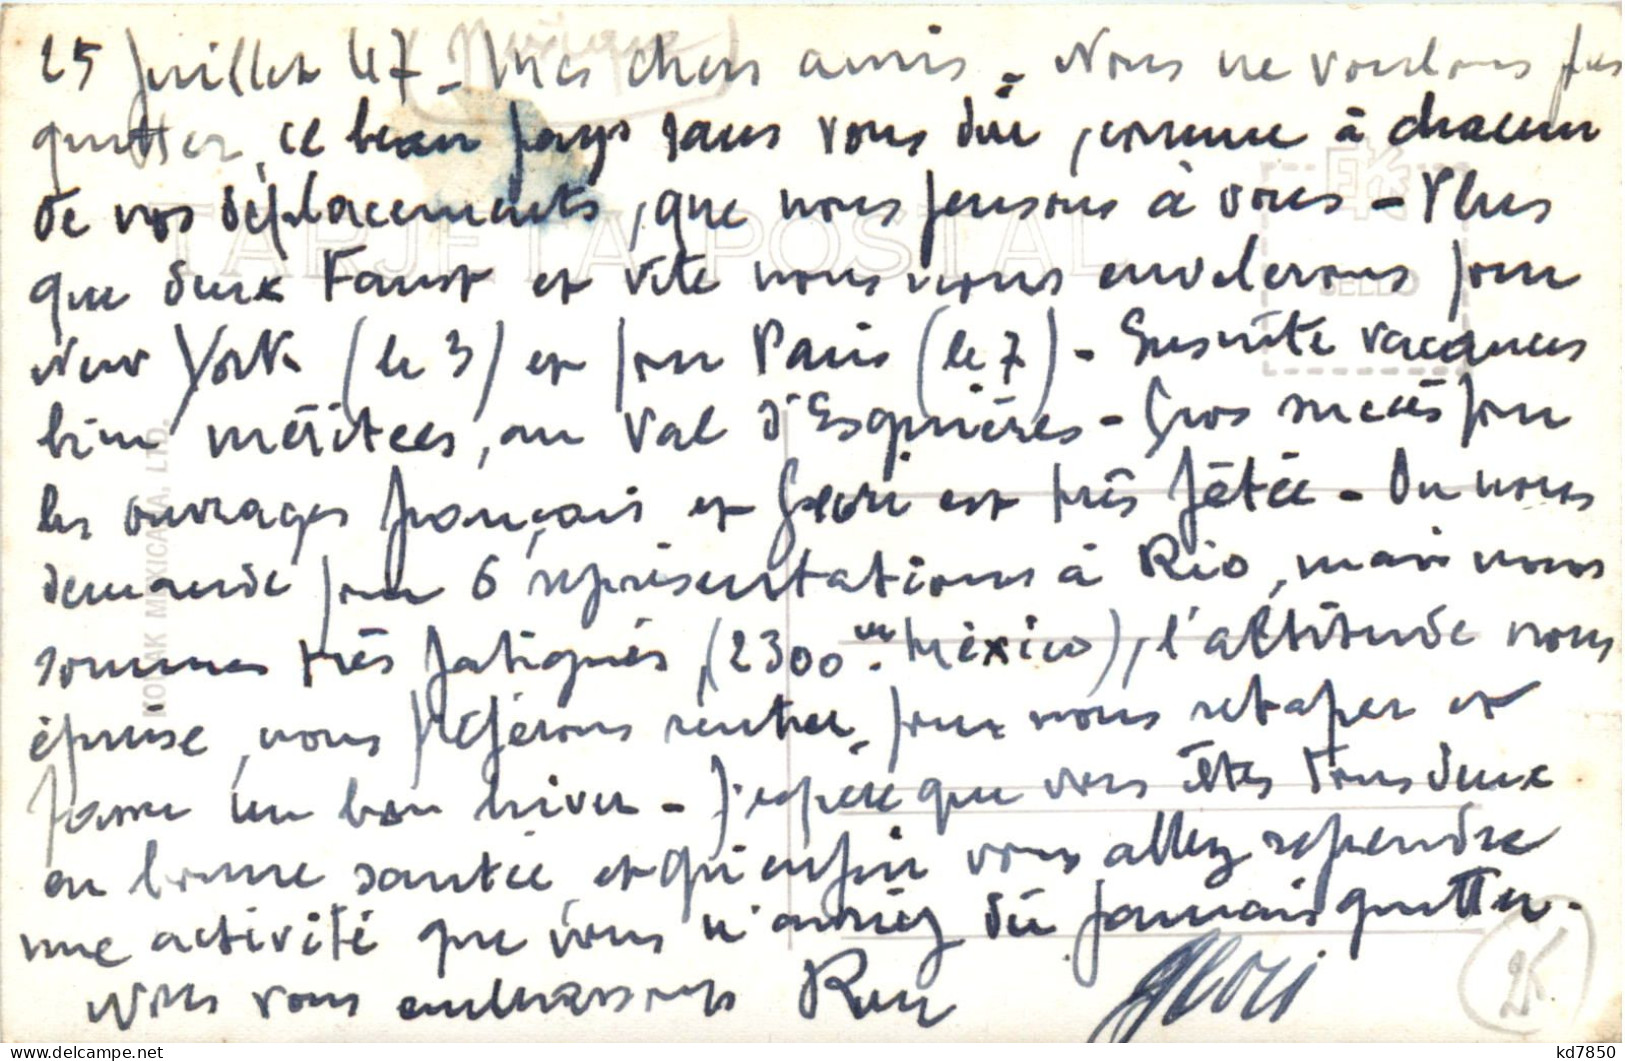 25 Juillet 47 - Mes chers amis - Nous ne voulons pas
quitter ce beau pays sans vous dire, comme à chacun
de vos déplacements, que nous pensons à vous - Plus
que deux Faust et vite nous nous envolerons pour
New York (le 3) et pour Paris (le 7) - Ensuite vacances
bien méritées, au Val d'Esquières - Gros succès pour
les ouvrages français et Geori est très fêtée - On nous
demande pour 6 représentations à Rio, mais nous
sommes très fatigués, (2300 m. México), l'altitude nous
épuise, nous préférons rentrer pour nous retaper et
faire un bon hiver - J'espère que vous êtes tous deux
en bonne santée et qu'enfin vous allez reprendre
une activité que vous n'auriez dû jamais quitter.
Nous vous embrassons
Geori
Mexique
TARJETA POSTAL
EKC
SELLO
KODAK MEXICANA, LTD.
2K
kd7850